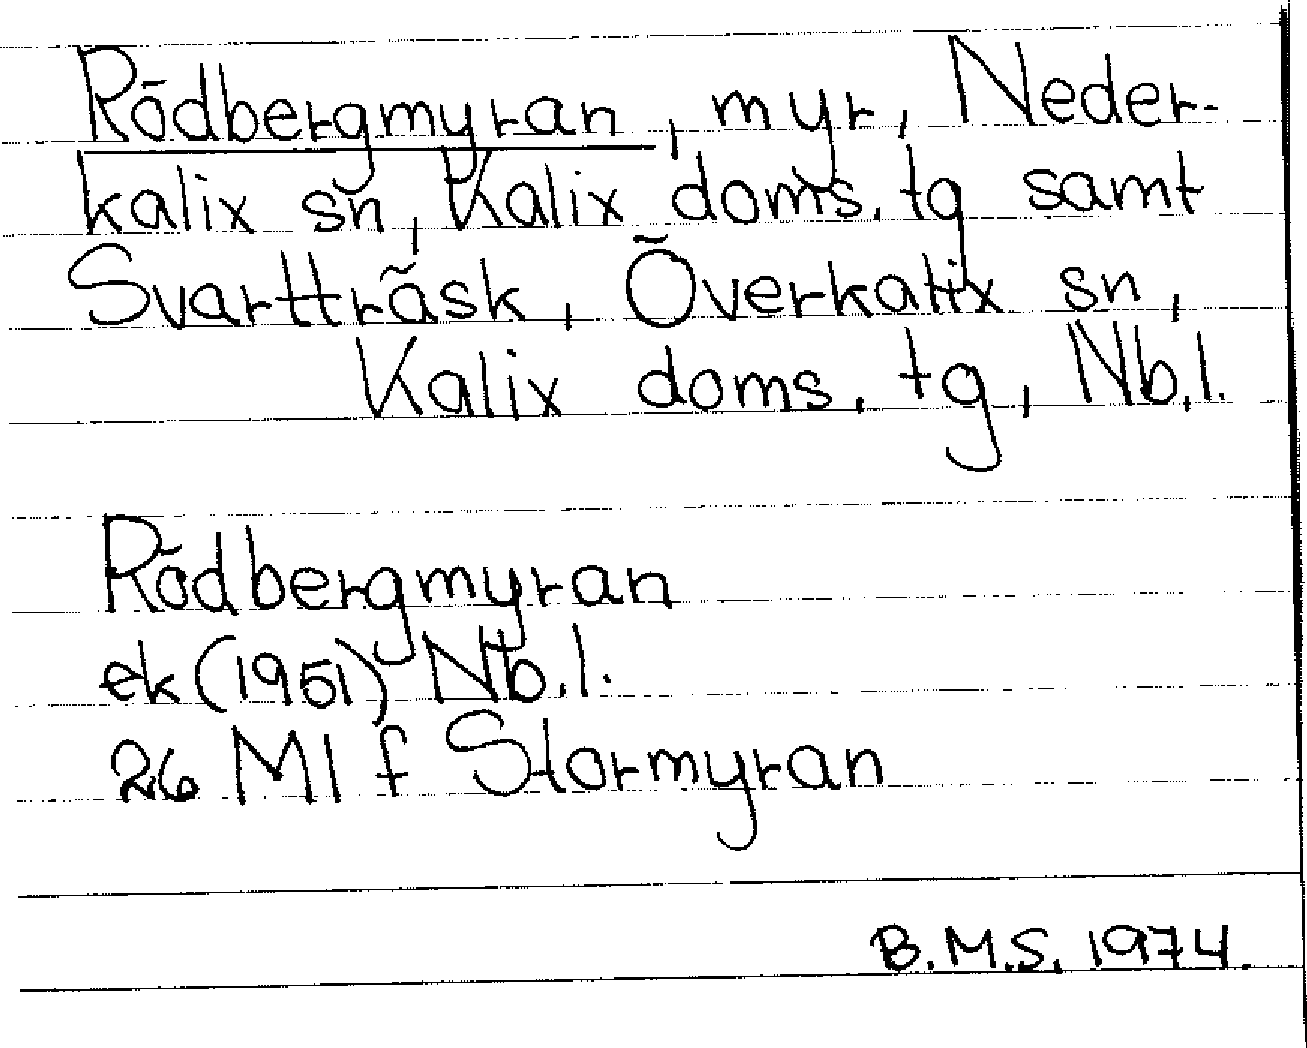 Rödbergmyran, myr, Neder-
kalix sn, Kalix doms. tg samt
Svartträsk, Överkalix sn,
Kalix doms. tg, Nb.l.
Rödbergmyran
ek (1961) Nb.l.
26 Ml f Stormyran
B.M.S. 1974.